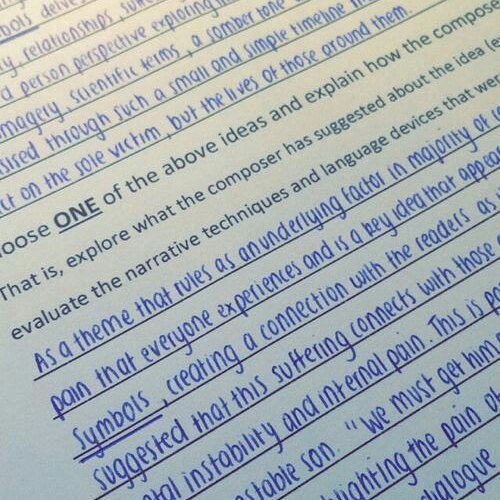 bols delve
y, relationships, suffe
d person perspective exploring
magery, scientific terms, a somber tone
sised through such a small and simple timeline tha
ct on the sole victim, but the lives of those around them.
oose ONE of the above ideas and explain how the compose
That is, explore what the composer has suggested about the idea
evaluate the narrative techniques and language devices that we
As a theme that rules as an underlying factor in majority of
pain that everyone experiences and is a key idea that appea
Symbols, creating a connection with the readers as
suggested that this suffering connects with those
tal instability and internal pain. This is
stable son. "We must get him
the pain of
alogue